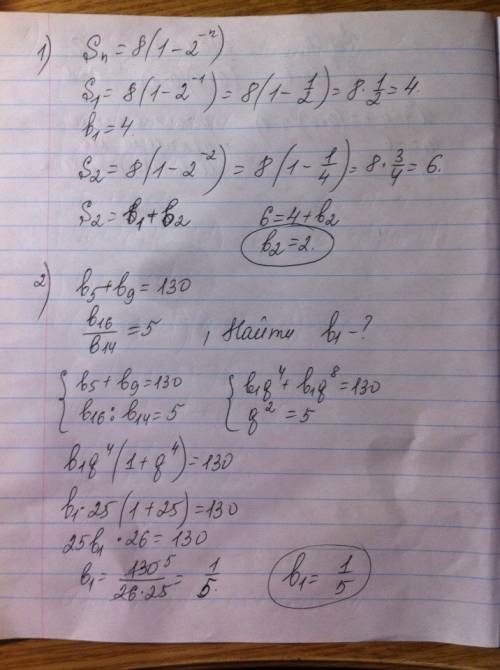 1) Sₙ = 8(1 – 2⁻ⁿ)
S₁ = 8(1 – 2⁻¹) = 8(1 – 1/2) = 8 · 1/2 = 4.
b₁ = 4.
S₂ = 8(1 – 2⁻²) = 8(1 – 1/4) = 8 · 3/4 = 6.
S₂ = b₁ + b₂ 6 = 4 + b₂
b₂ = 2.
2) b₅ + b₉ = 130
b₁₆/b₁₄ = 5 , Найти b₁ – ?
{ b₅ + b₉ = 130 { b₁q⁴ + b₁q⁸ = 130
b₁₆ : b₁₄ = 5 q² = 5
b₁q⁴(1 + q⁴) = 130
b₁ · 25(1 + 25) = 130
25b₁ · 26 = 130
b₁ = 130⁵/26·25 = 1/5. b₁ = 1/5